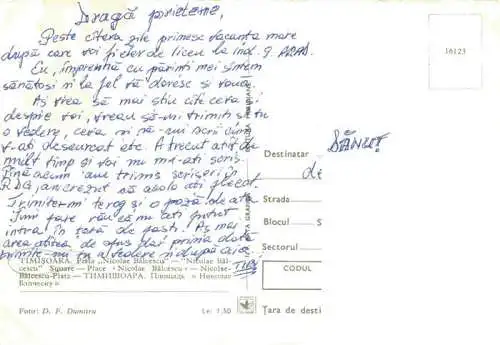 Dragă prietene,
Peste câteva zile primesc vacanța mare
după care voi fi elev de liceu la ind. 9 ARAD.
Eu, împreună cu părinți mei sîntem
sănătoși și la fel vă doresc și vouă
Aș vrea să mai știu cîte ceva și
despre voi, vreau să-mi trimiți și tu
o vedere, ceva și să-mi scrii cum
v-ați descurcat etc. A trecut atît de
mult timp și voi nu mi-ați scris.
Pînă acum am trimis scrisori în
RDG, am crezut că acolo ați plecat.
Trimite-mi te rog și o poză de-a ta
Îmi pare rău că nu ați putut
intra în țară de Paști. Aș mai
avea atîtea de spus dar prima dată
trimite-mi tu o vedere și după aceea
TIMIȘOARA. Piața „Nicolae Bălcescu" — "Nicolae Băl-
cescu" Square — Place « Nicolae Bălcescu » — Nicolae-
Bălcescu-Platz — ТИМИШОАРА. Площадь « Николае
Бэлческу »
Foto: D. F. Dumitru
Lei 1,50
16123
DĂNUȚ
Destinatar
Strada
Blocul
Sectorul
CODUL
Țara de desti